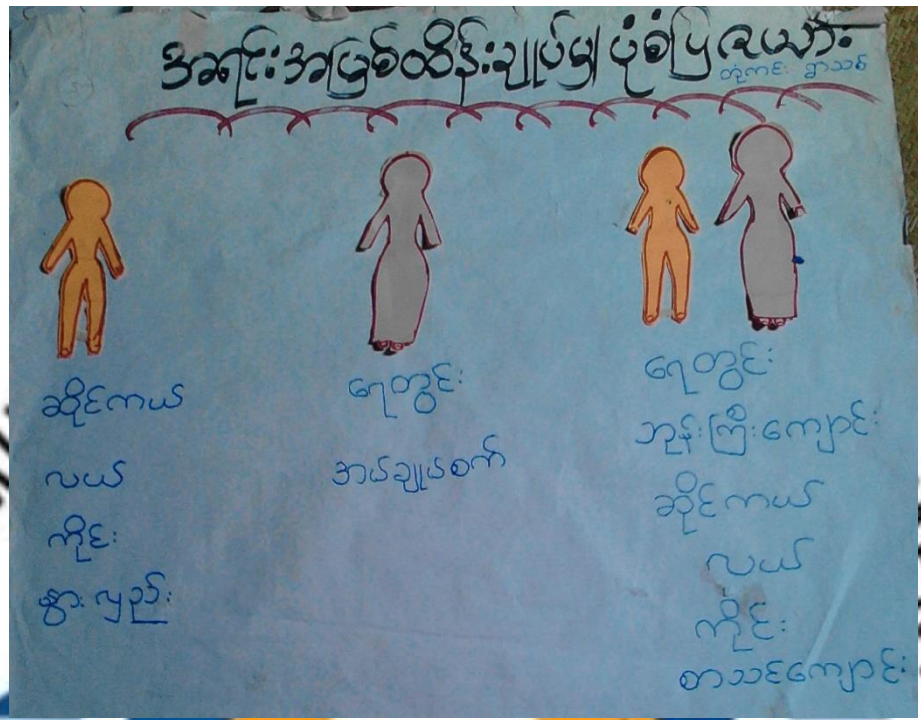 အရင်းအမြစ်ထိန်းချုပ်မှု ပုံစံပြ ဇယား
တုံကင်း ရွာသစ်
ဆိုင်ကယ်
လယ်
ကိုင်း
နွား လှည်း
ရေတွင်း
အပ်ချုပ်စက်
ရေတွင်း
ဘုန်းကြီးကျောင်း
ဆိုင်ကယ်
လယ်
ကိုင်း
စာသင်ကျောင်း